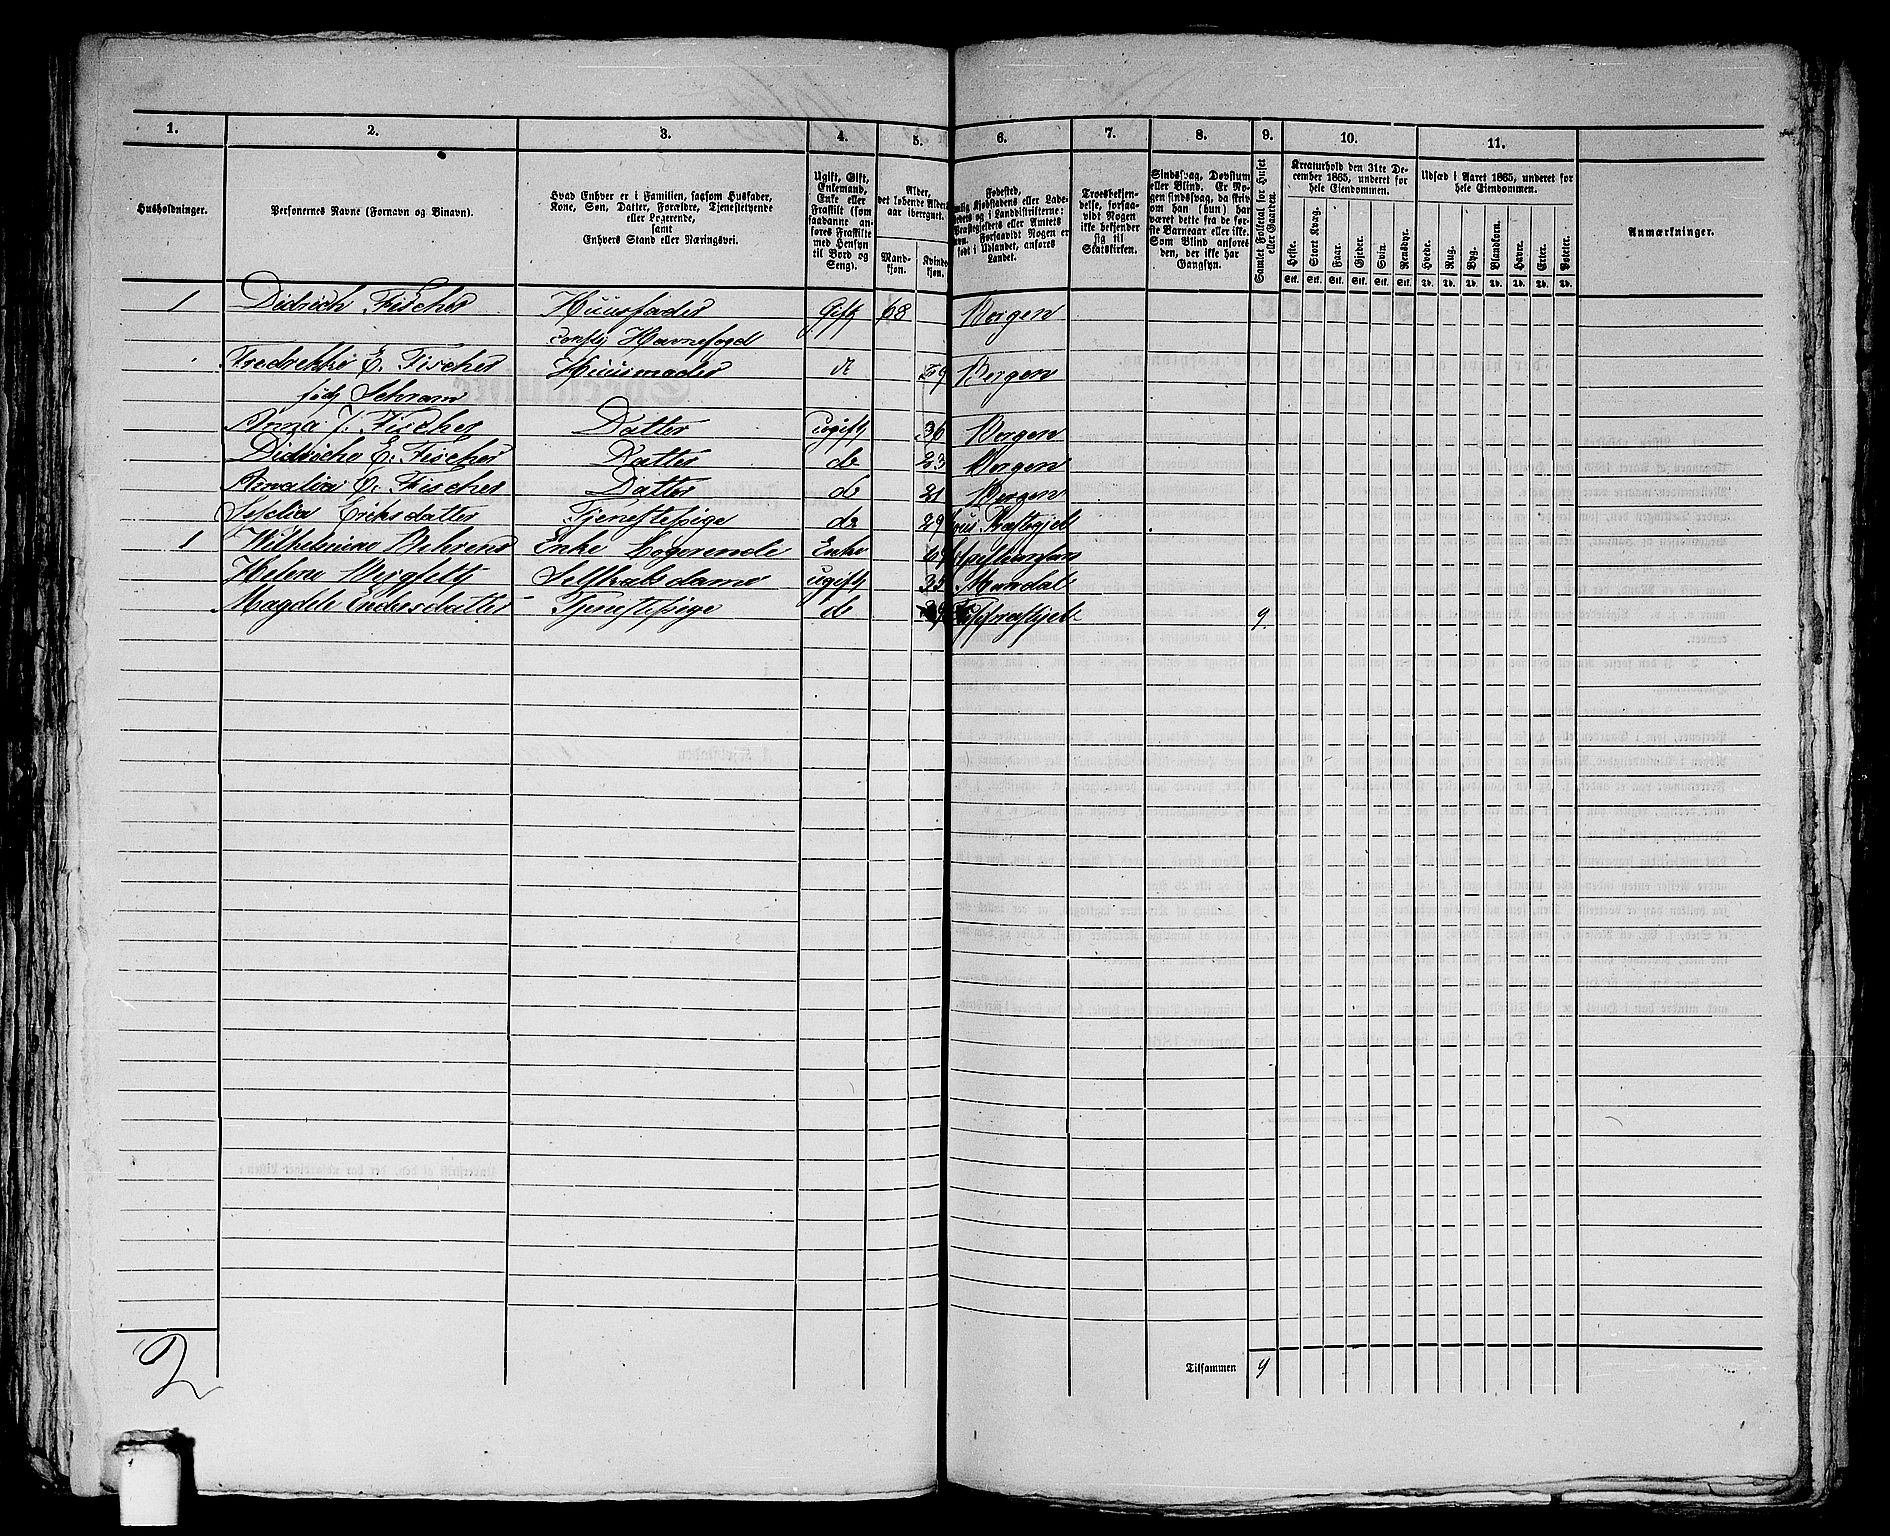 1. 2. 3. 4. 5. 6. 7. 8. 9. 10. 11.
Husholdninger.
Personernes Navne (Fornavn og Binavn).
Hvad Enhver er i Familien, saasom Husfader,
Kone, Søn, Datter, Forældre, Tjenestetyende
eller Logerende,
samt
Enhvers Stand eller Næringsvei.
Ugift, Gift,
Enkemand,
Enke eller
Fraskilte (som
saadanne an-
føres Fraskilte
med Hensyn
til Bord og
Seng).
Alder,
det løbende Alders-
aar iberegnet.
Mand-
kjøn.
Kvinde-
kjøn.
Fødested,
Kjøbstadens eller Lade-
stedets og i Landdistrikterne:
Præstegjeldets eller Amtets
Navn. Forsaavidt Nogen er
født i Udlandet, anføres
Landet.
Troesbekjen-
delse, forsaa-
vidt Nogen
ikke bekjender
sig til
Statskirken.
Sindssvag, Døvstum
eller Blind. Er No-
gen sindssvag, da skriv
om han (hun) har
været dette fra de før-
ste Barneaar eller ikke.
Som Blind anføres
den, der ikke har
Gangsyn.
Samlet Folketal for Huset
eller Gaarden.
Kreaturhold den 31te De-
cember 1865, underet for
hele Eiendommen.
Heste. Stort Kvæg. Faar. Gjeder. Svin. Rensdyr.
Stk. Stk. Stk. Stk. Stk. Stk.
Udsæd i Aaret 1865, underet for
hele Eiendommen.
Hvede. Rug. Byg. Blandkorn. Havre. Erter. Poteter.
Td. Td. Td. Td. Td. Td. Td.
Anmærkninger.
1 Didrich Fischer Huusfader Gift 68 Bergen
Havnefogd
Fredrikke E. Fischer Huusmoder Bergen
født Schram
Anna J. Fischer Datter ugift 36 Bergen
Didriche E. Fischer Datter do 23 Bergen
Amalia C. Fischer Datter do 21 Bergen
Eriksdatter Tjenestepige do 29
1 Wilhelmine Behrens Enke Logerende Enke
Helene Selskabsdame ugift 35 Mandal
Magdele Endersdatter Tjenestepige do 9
Tilsammen 9
2